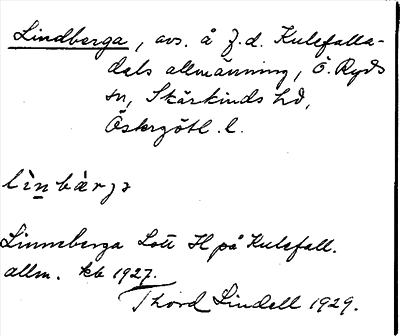 Lindberga, avs. å f.d. Kulefalla-
dals allmänning, Ö. Ryds
sn, Skärkinds hd,
Östergötl. l.
lìnbær̀ja
Linneberga Lott H på Kulefall.
allm. kb 1927.
Thord Lindell 1929.